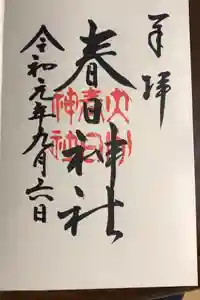 奉拝
春日神社
春日
神社
令和元年九月六日